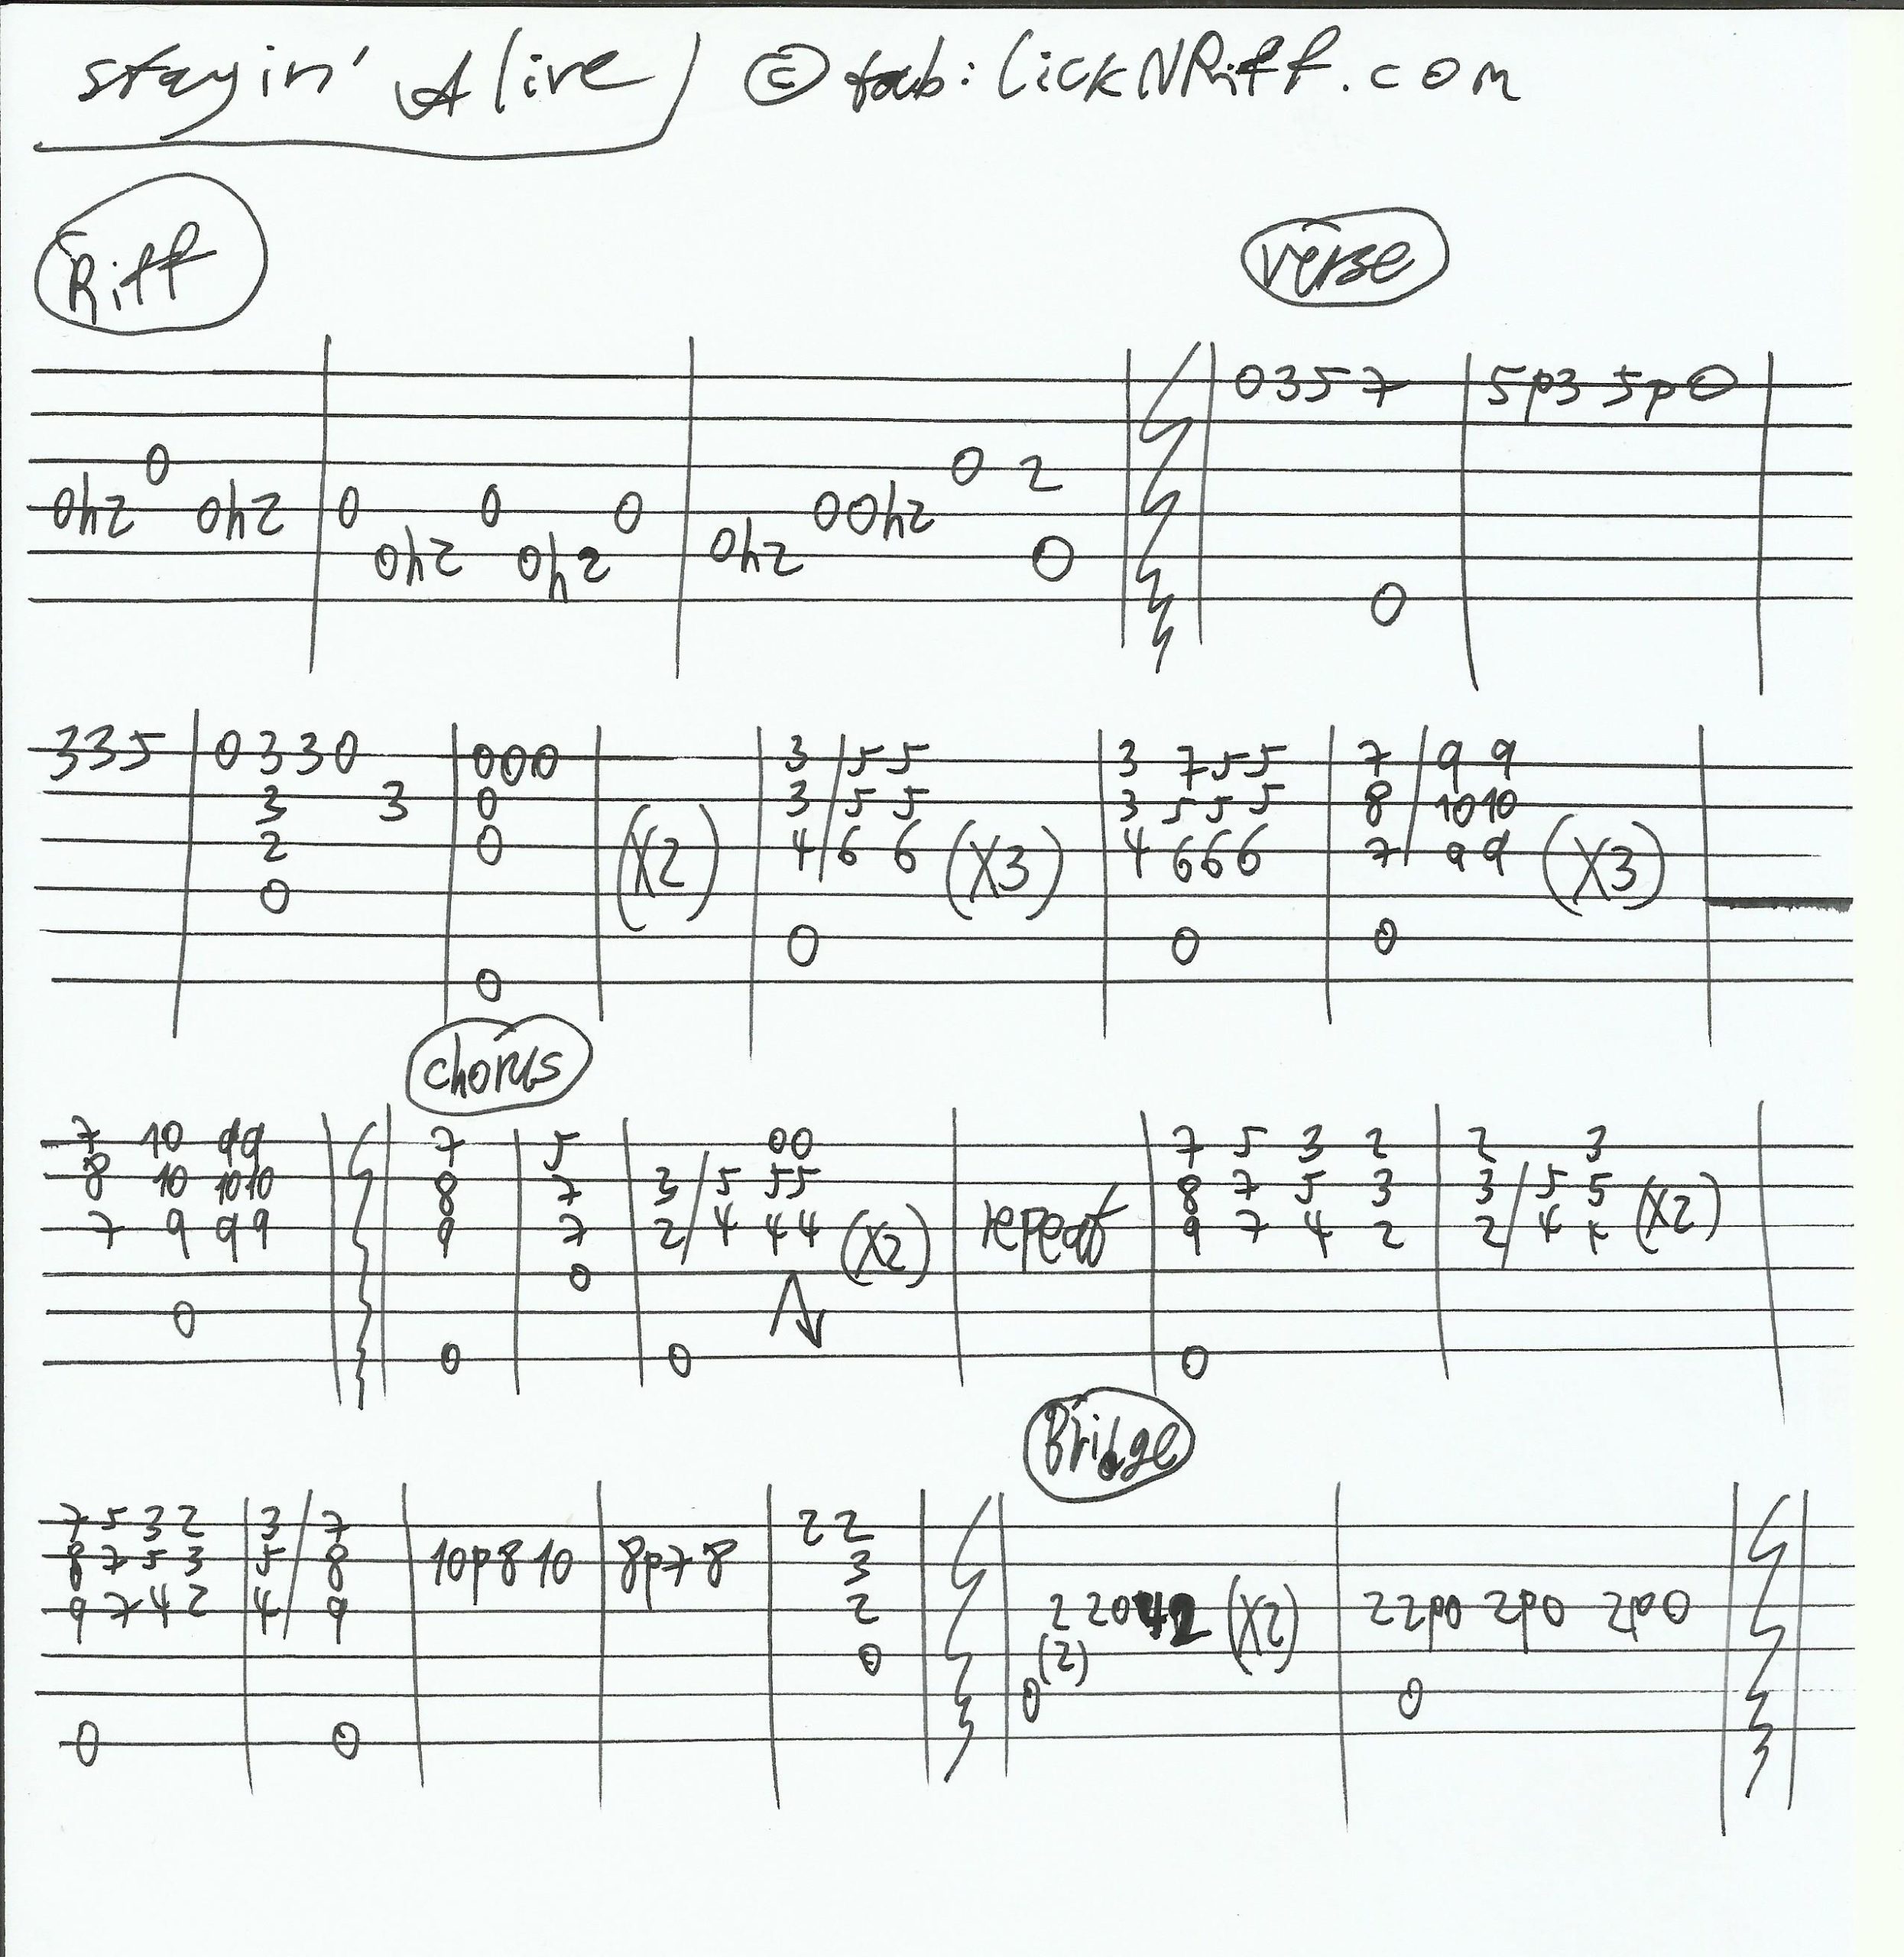 stayin' Alive © tab: LickNRiff.com
Riff
verse
0 3 5 7 5p3 5p0
0 0 2
0h2 0h2 0 0 0 00h2
0h2 0h2 0h2 0
0
3 3 5 0 3 3 0 0 0 0 3 / 5 5 3 7 5 5 7 / 9 9
3 3 0 3 / 5 5 3 5 5 5 8 / 10 10
2 0 (X2) 4 / 6 6 (X3) 4 6 6 6 7 / 9 9 (X3)
0
0 0 0
0
chorus
7 10 9 9 7 5 0 0 7 5 3 2 2 3
8 10 10 10 8 7 3 / 5 5 5 8 7 5 3 3 / 5 5
7 9 9 9 9 7 2 / 4 4 4 (X2) repeat 9 7 4 2 2 / 4 4 (X2)
0
0
0 0 0
Bridge
7 5 3 2 3 / 7 2 2
8 7 5 3 5 / 8 10p8 10 8p7 8 3
9 7 4 2 4 / 9 2 2 2 0 4 2 (X2) 2 2p0 2p0 2p0 0
0 (2)
0 0
0 0